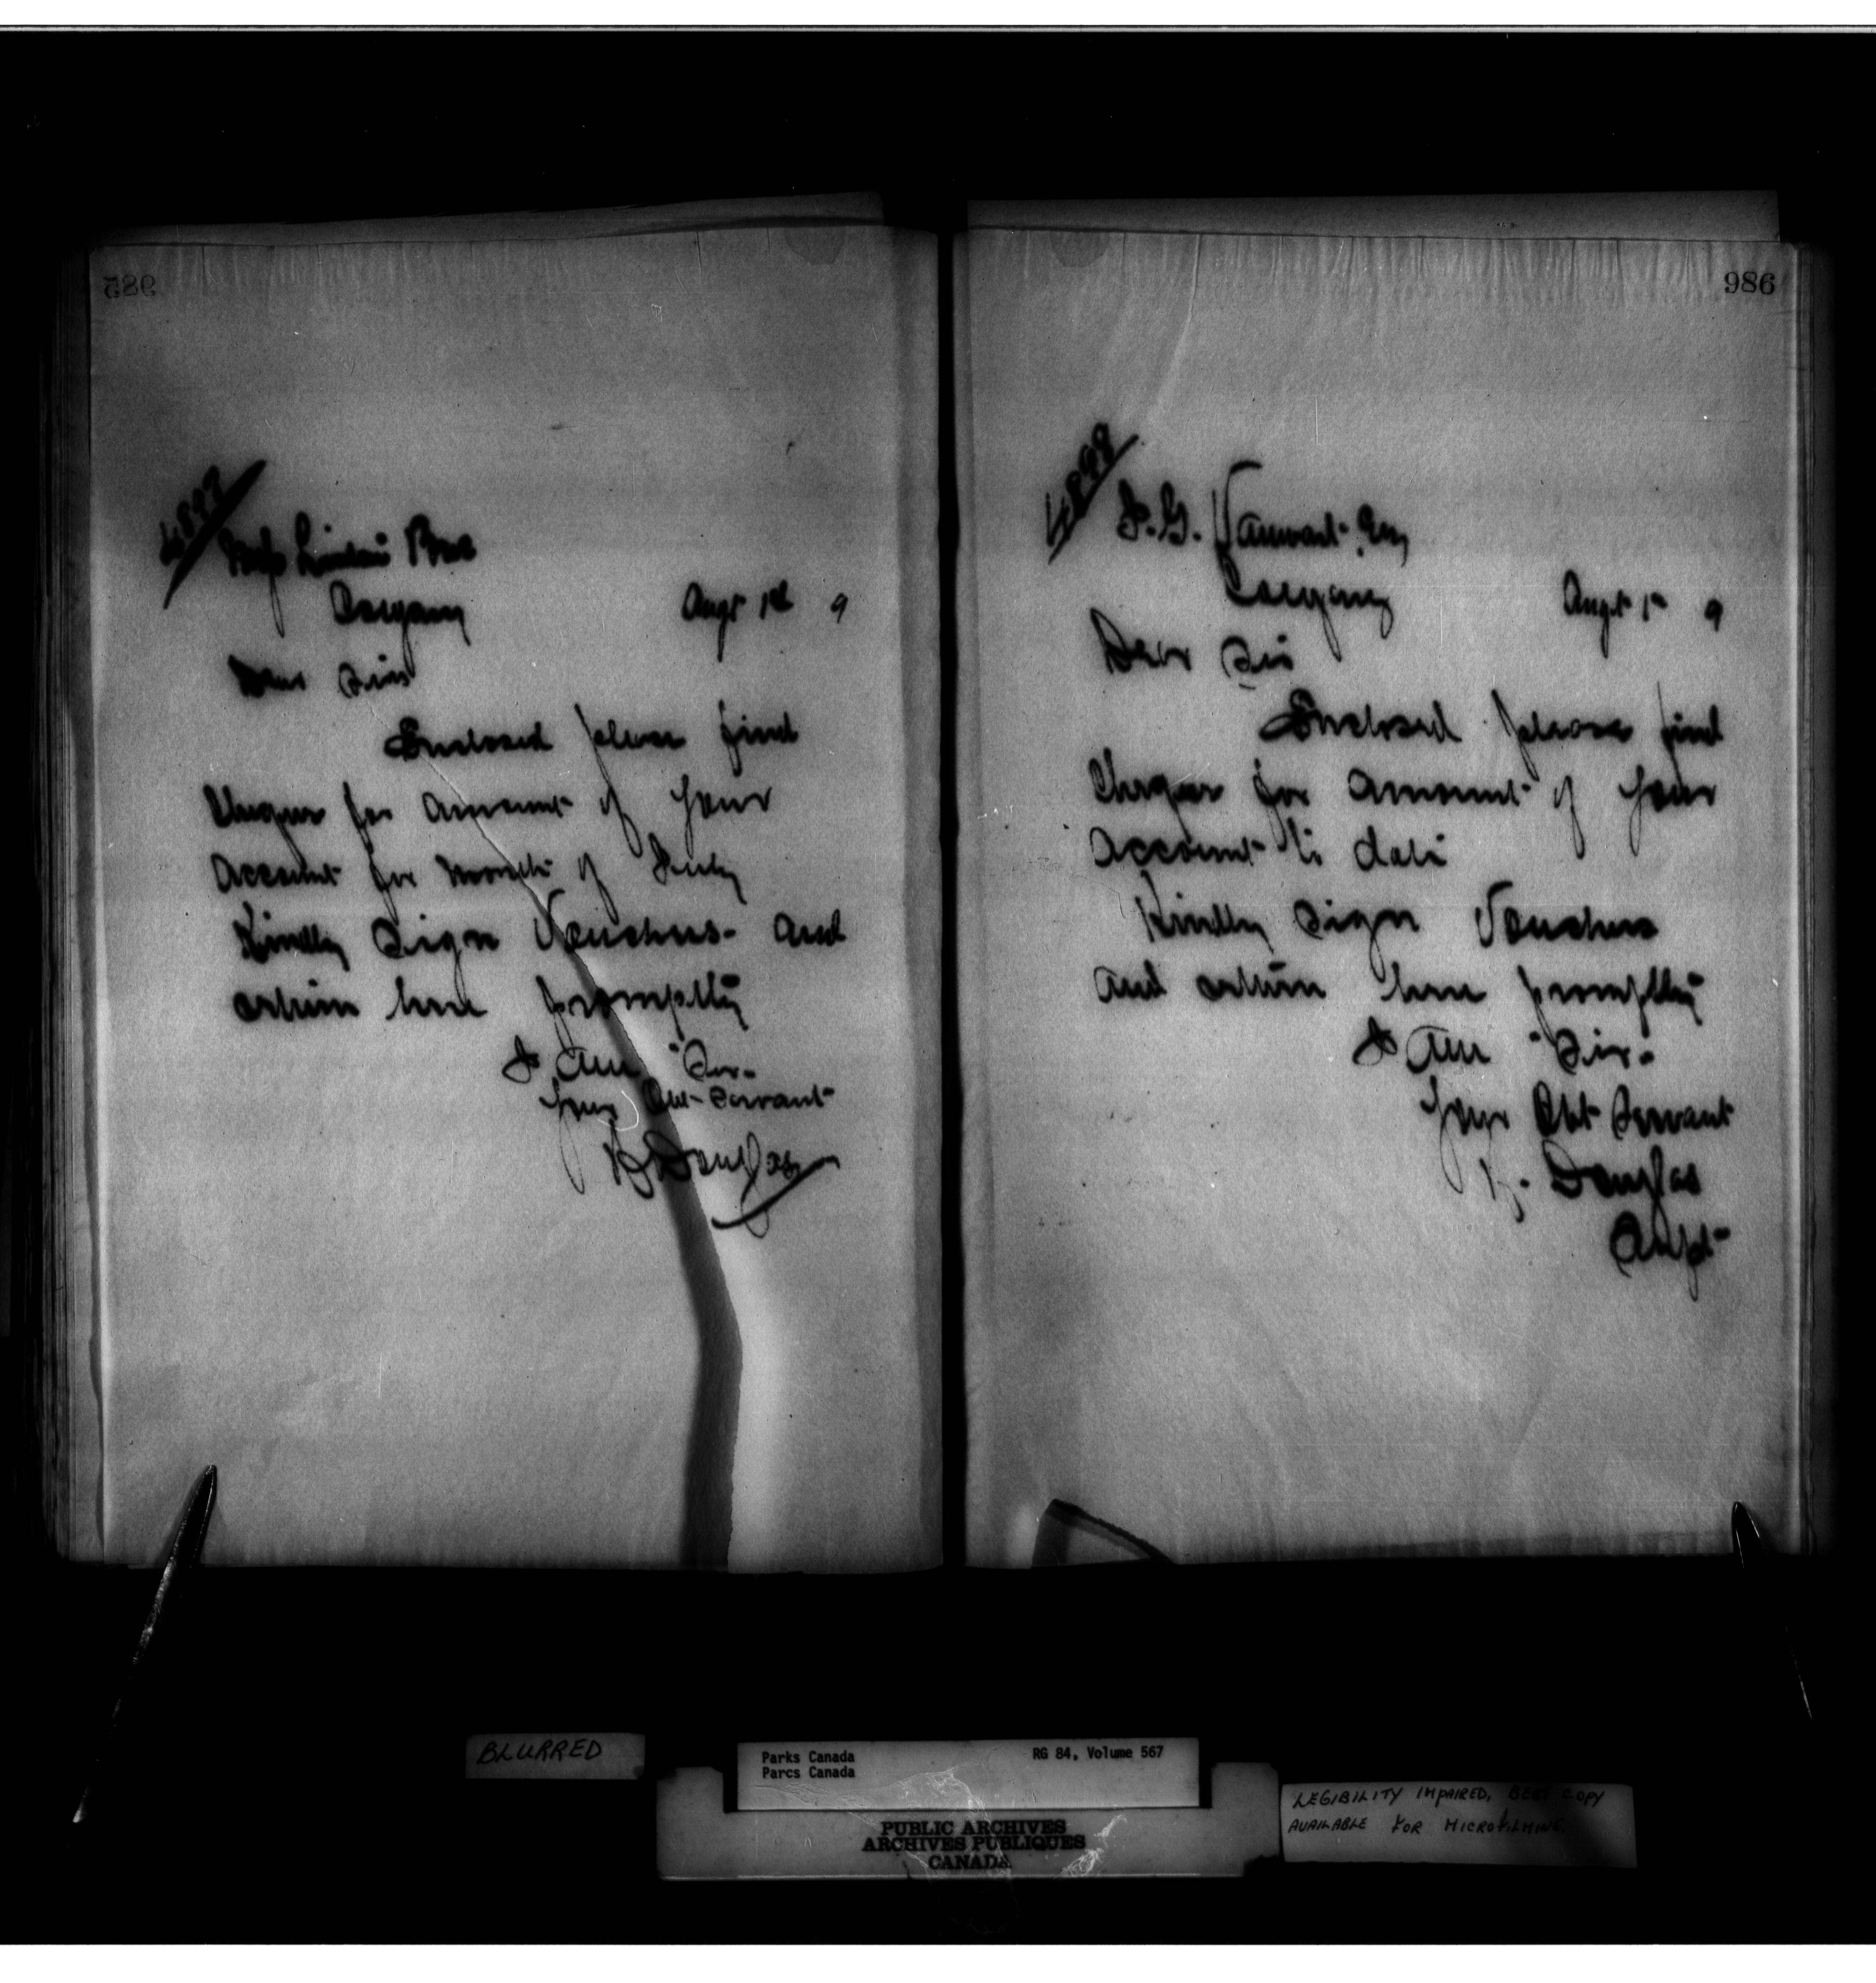 985
4897
Messrs Linton Bros
Calgary
Augt 1st 9
Dear Sirs
Enclosed please find
Cheque for amount of your
account for month of July
Kindly sign Vouchers - and
return here promptly
I am Sir -
Your Obt Servant
H Douglas
986
4898
I. G. Vanwart Esq
Calgary
Augt 1st 9
Dear Sir
Enclosed please find
Cheque for amount of your
account to date
Kindly sign Vouchers
and return here promptly
I am Sir -
Your Obt Servant
H. Douglas
Supt
BLURRED
Parks Canada
Parcs Canada
RG 84, Volume 567
PUBLIC ARCHIVES
ARCHIVES PUBLIQUES
CANADA
LEGIBILITY IMPAIRED, BEST COPY
AVAILABLE FOR MICROFILMING